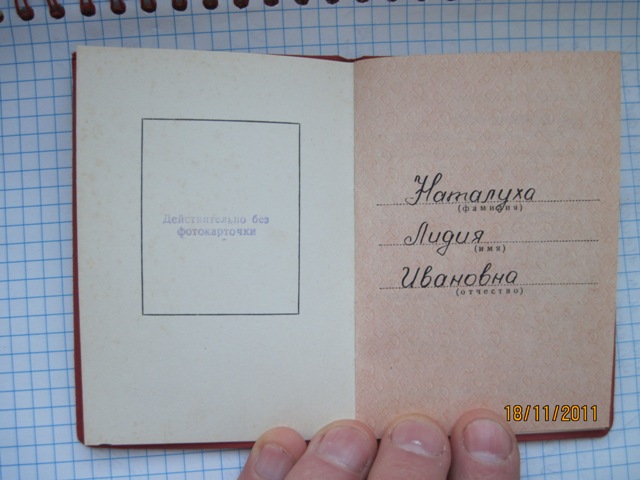 Действительно без
фотокарточки
Наталуха
(фамилия)
Лидия
(имя)
Ивановна
(отчество)
18/11/2011